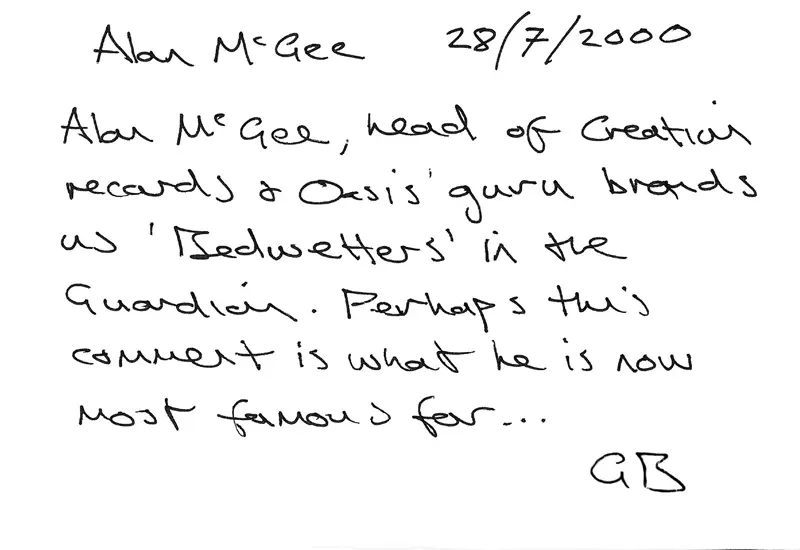 Alan McGee 28/7/2000
Alan McGee, head of Creation
records & Oasis' guru brands
us 'Bedwetters' in the
Guardian. Perhaps this
comment is what he is now
most famous for...
GB